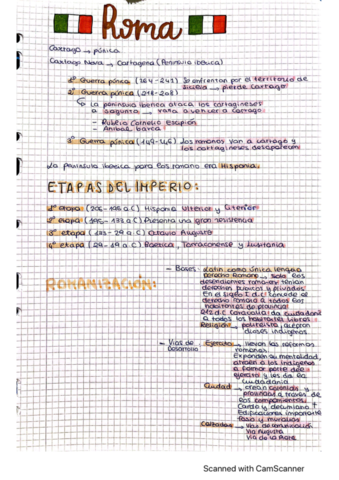 Roma
Cartago → púnica
Cartago Nova → Cartagena (Península ibérica)
1ª Guerra púnica (264-241) Se enfrentan por el territorio de
Sicilia → pierde Cartago
2ª Guerra púnica (218-208)
La península iberica ataca los cartagineses
a Sagunto → roma a vencer a Cartago.
- Publio Cornelio Escipión
- Anibal barca
3ª Guerra púnica (149-146) los romanos van a cartago y
los cartagineses desaparecen
La península ibérica para los romano era Hispania.
ETAPAS DEL IMPERIO:
1ª etapa (206-195 a.C) Hispania Ulterior y Citerior
2ª etapa (195-133 a.C) Presenta una gran resistencia
3ª etapa (133-29 a.C) Octavio Augusto
4ª etapa (29-19 a.C) Baetica, Tarraconense y Lusitania
ROMANIZACIÓN:
- Bases: Latín como única lengua
Derecho Romano → solo los
romanos tenían
derechos públicos y privados
En el siglo I d.C concede el
derecho romano a todos los
habitantes de
212 d.C Caracalla da ciudadanía
a todos los habitantes libres.
Religión → politeista, aceptan
dioses indígenas
- Vías de Ejército → llevan las reformas
desarrollo romanas.
Expanden su mentalidad,
atraen a los indígenas
a formar parte del
ejército y les da la
ciudadanía
Ciudad → crean colonias y
a través de
los campamentos.
Cardo y decumano +
Edificaciones importante
foso y murallas
Calzadas → Vías de comunicación
Vía Augusta
Vía de la Plata
Scanned with CamScanner